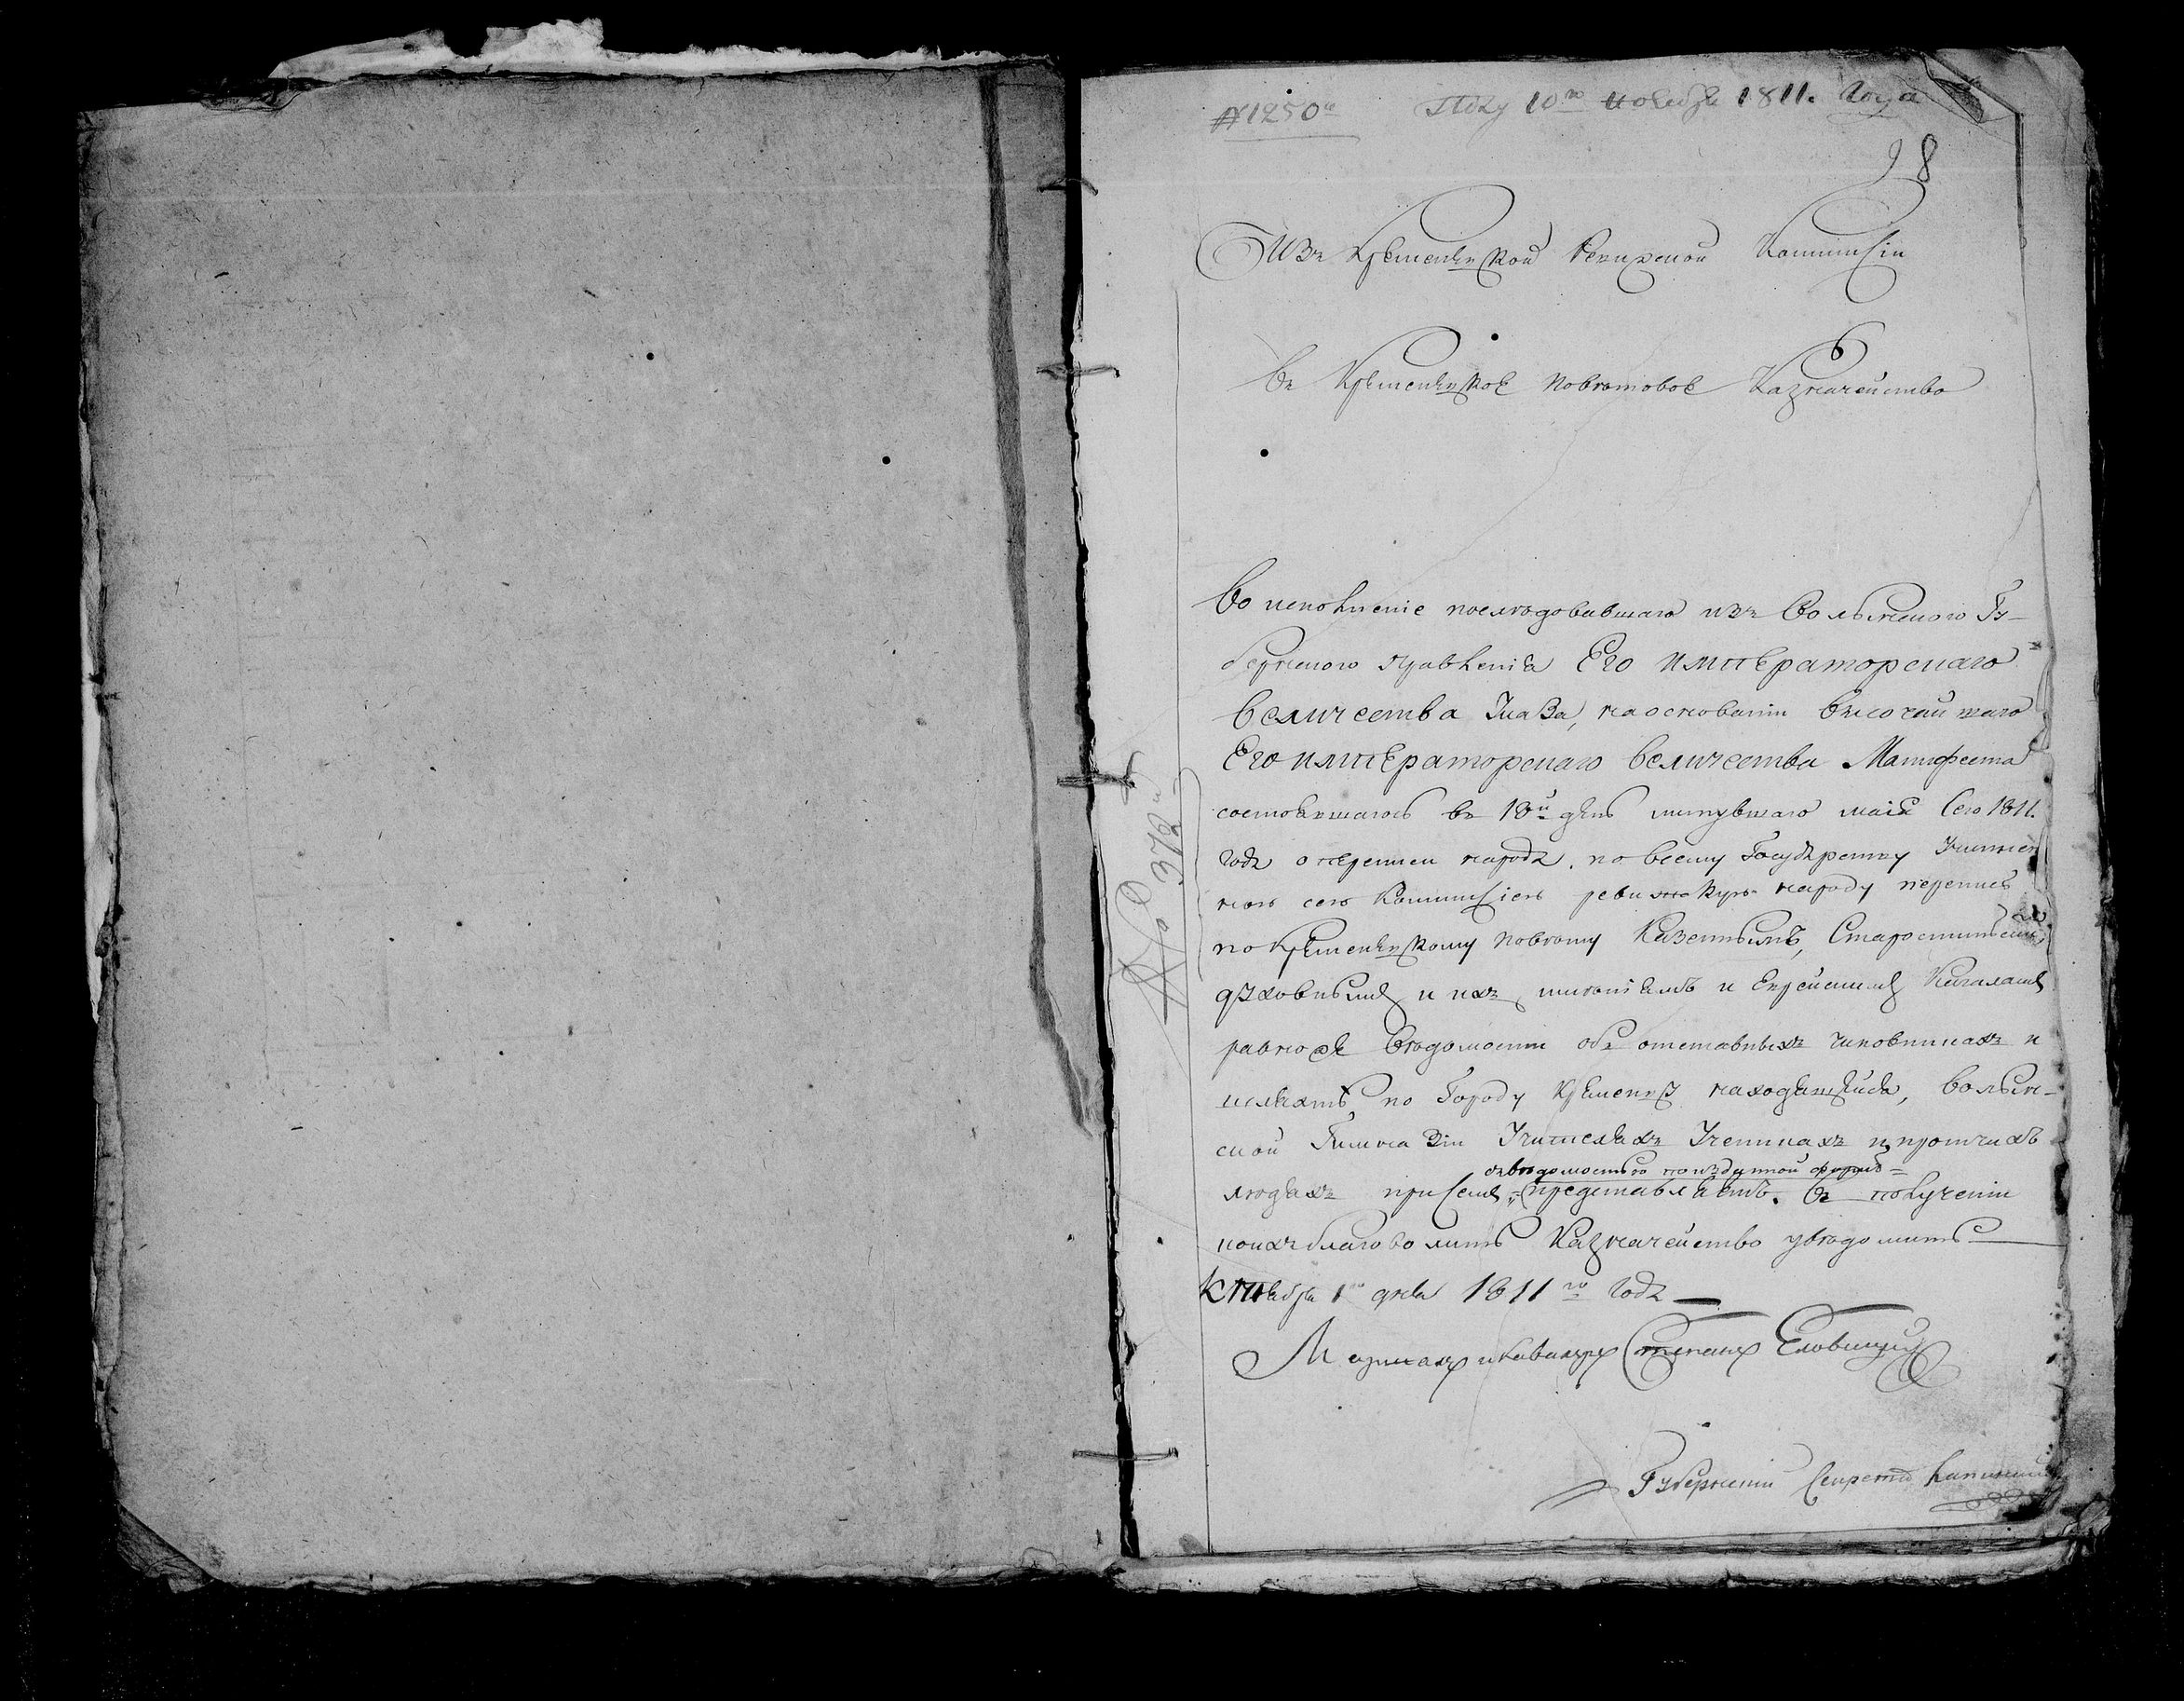 № 1250го Пολу 10го ноября 1811. года
98
Изъ Кременецкой Ревизской Коммисіи
въ Кременецкое Поветовое Казначейство
Во исполненіе последовавшаго изъ Волынского Гу-
бернского правленія Его императорскаго
величества Указа, на основаніи высочайшаго
Его императорскаго величества Манифеста
состоявшагось въ 18й день минувшаго маіа Сего 1811.
года о переписи народа по всему Государству Учинен
ною сею Коммисіею народу перепись
по Кременецкому повету Казеннымъ, Старостинскимъ
духовнымъ и ихъ имениямъ и Еврейскимъ Кагаламъ
равно же Ведомости объ отставныхъ чиновникахъ и
шляхтъ по Городу Кременцу находящейся, волын-
ской Гимназіи Учителяхъ Ученикахъ и протчихъ
съ ведомостью по изданной форме
людяхъ при семъ представляетъ. О получении
коихъ благоволитъ Казначейство уведомить
Октября 1го дня 1811го года
Маршалъ и Кавалеръ Степанъ Еловицкій
Губернскій Секретарь
№ 376й